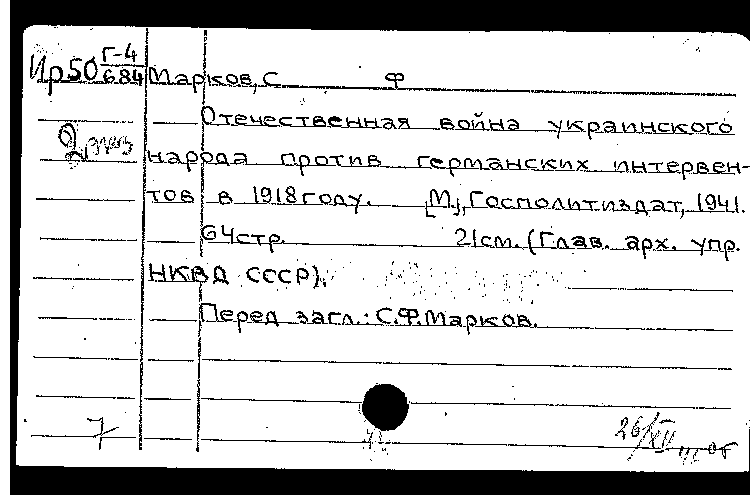 Ир50 Г-4/684 Марков, С Ф
Отечественная война украинского
народа против германских интервен-
тов в 1918 году. [М.], Госполитиздат, 1941.
64 стр. 21 см. (Глав. арх. упр.
НКВД СССР).
Перед загл.: С.Ф. Марков.
7
26/XII